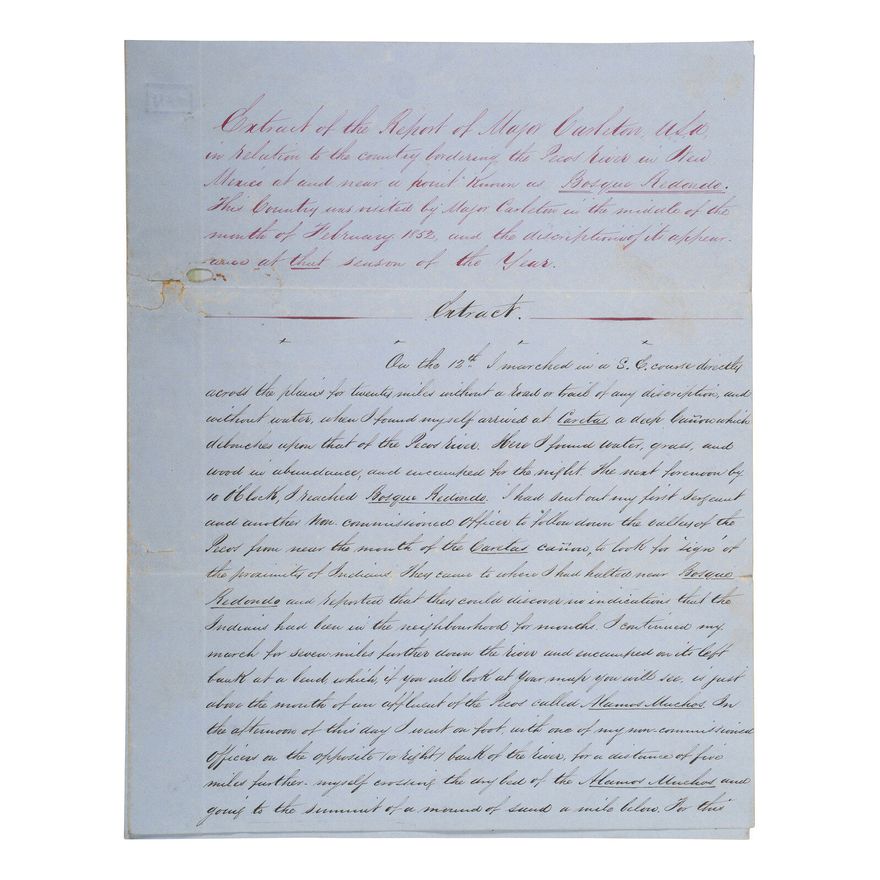 Extract of the Report of Major Carleton, U.S.A,
in relation to the country bordering the Pecos River in New
Mexico at and near a point known as Bosque Redondo.
This Country was visited by Major Carleton in the middle of the
month of February 1852, and the discription of it appear-
ance at that season of the Year.
Extract.
On the 12th I marched in a S.E. course directly
across the plains for twenty miles without a road or trail of any discription, and
without water, when I found myself arrived at Caretas a deep Cañon which
debouches upon that of the Pecos River. Here I found water, grass, and
wood in abundance, and encamped for the night. The next forenoon by
10 O'Clock, I reached Bosque Redondo. I had sent out my first Sergeant
and another Non. commissioned Officer to follow down the valley of the
Pecos from near the mouth of the Caretas cañon, to look for 'sign' of
the proximity of Indians. They came to where I had halted near Bosque
Redondo and reported that they could discover no indications that the
Indians had been in the neighbourhood for months. I continued my
march for seven miles further down the river and encamped on its left
bank at a bend, which, if you will look at your map you will see, is just
above the mouth of an affluent of the Pecos called Alamos Muchos. In
the afternoon of this day I went on foot, with one of my non-commissioned
Officers on the opposite (or right) bank of the river, for a distance of five
miles further. myself crossing the dry bed of the Alamos Muchos and
going to the summit of a mound of sand a mile below. For this